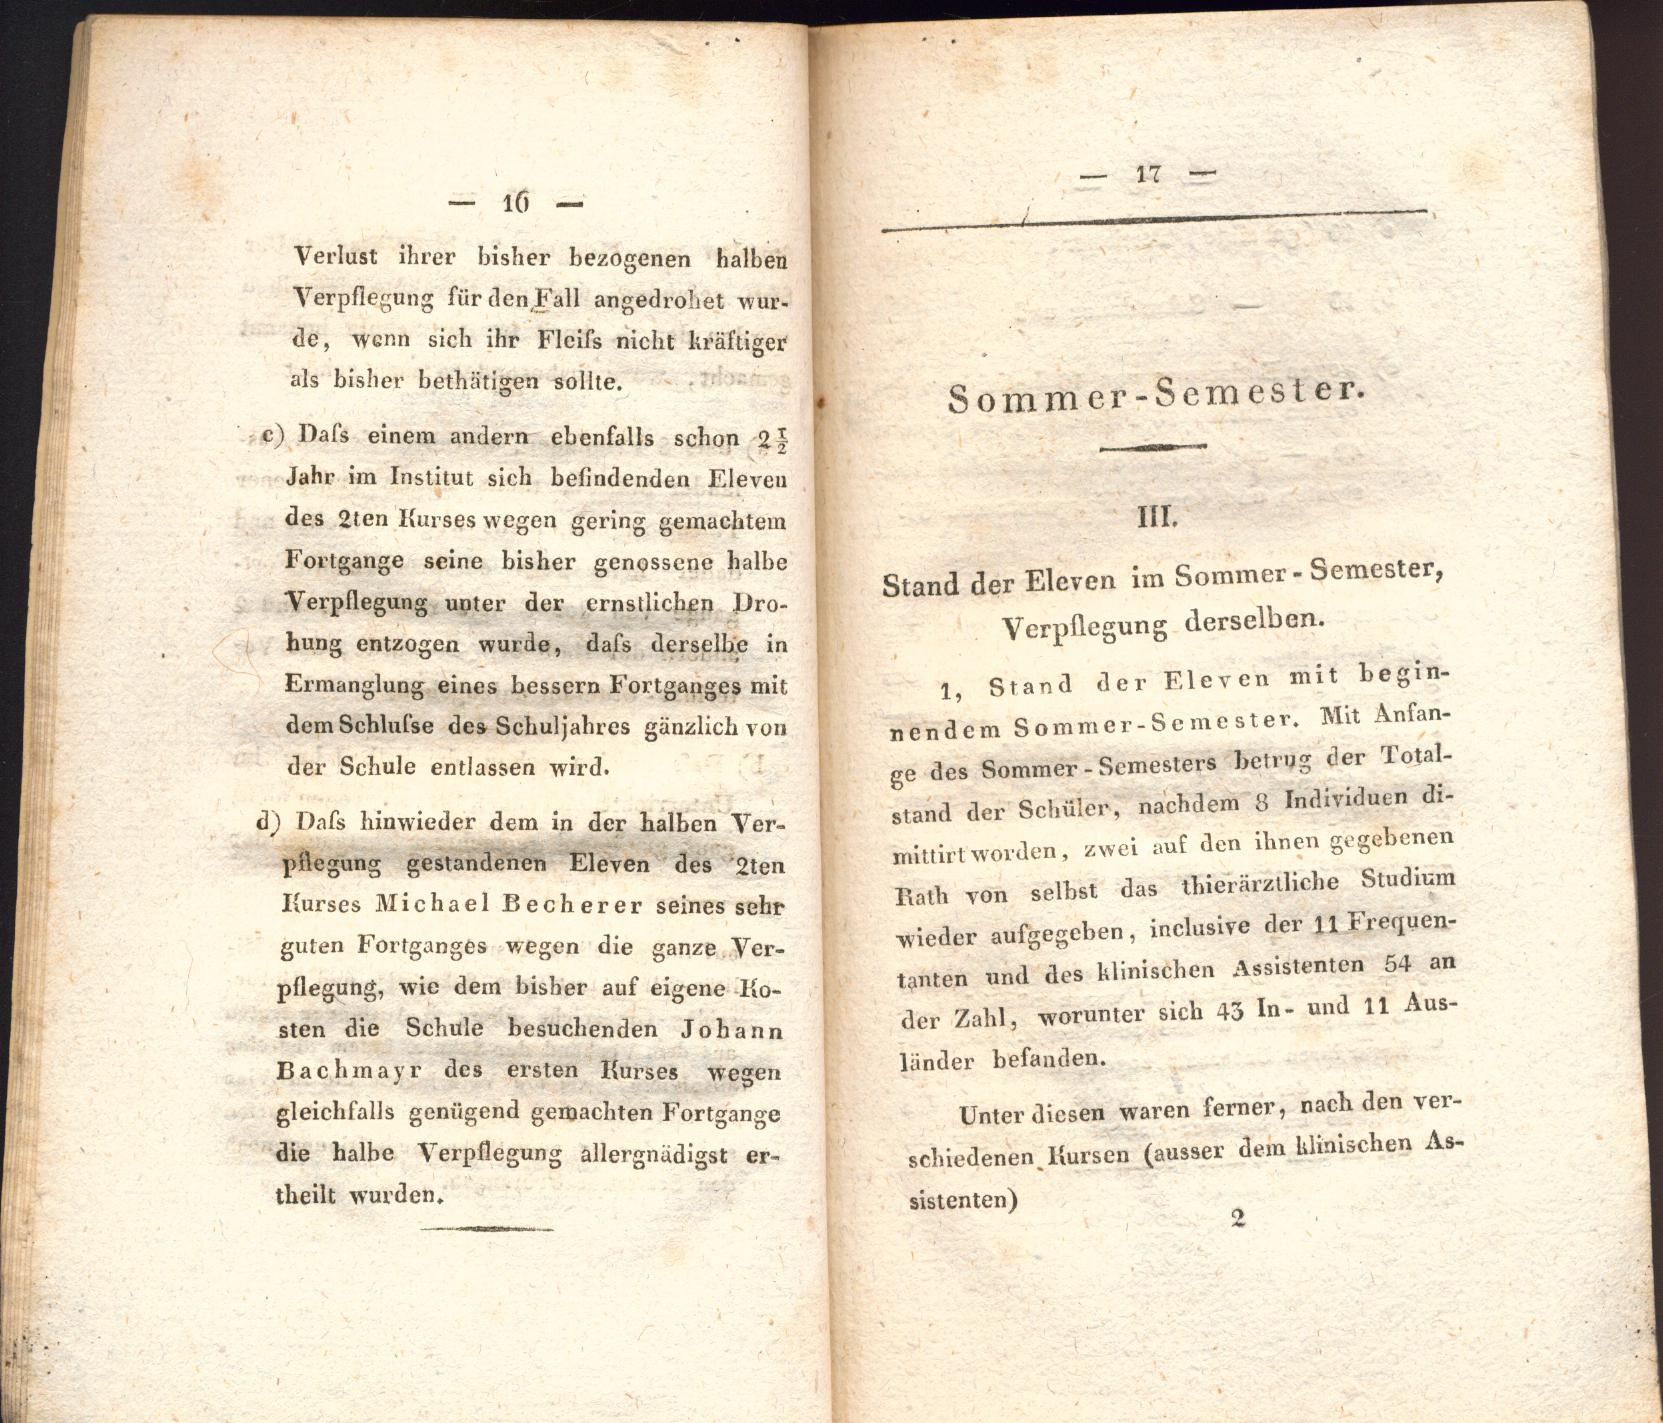 — 16 —
Verlust ihrer bisher bezogenen halben
Verpflegung für den Fall angedrohet wur-
de, wenn sich ihr Fleiſs nicht kräftiger
als bisher bethätigen sollte.
c) Daſs einem andern ebenfalls schon 2½
Jahr im Institut sich befindenden Eleven
des 2ten Kurses wegen gering gemachtem
Fortgange seine bisher genossene halbe
Verpflegung unter der ernstlichen Dro-
hung entzogen wurde, daſs derselbe in
Ermanglung eines bessern Fortganges mit
dem Schluſse des Schuljahres gänzlich von
der Schule entlassen wird.
d) Daſs hinwieder dem in der halben Ver-
pflegung gestandenen Eleven des 2ten
Kurses Michael Becherer seines sehr
guten Fortganges wegen die ganze Ver-
pflegung, wie dem bisher auf eigene Ko-
sten die Schule besuchenden Johann
Bachmayr des ersten Kurses wegen
gleichfalls genügend gemachten Fortgange
die halbe Verpflegung allergnädigst er-
theilt wurden.
— 17 —
Sommer-Semester.
III.
Stand der Eleven im Sommer-Semester,
Verpflegung derselben.
1, Stand der Eleven mit begin-
nendem Sommer-Semester. Mit Anfan-
ge des Sommer-Semesters betrug der Total-
stand der Schüler, nachdem 8 Individuen di-
mittirt worden, zwei auf den ihnen gegebenen
Rath von selbst das thierärztliche Studium
wieder aufgegeben, inclusive der 11 Frequen-
tanten und des klinischen Assistenten 54 an
der Zahl, worunter sich 43 In- und 11 Aus-
länder befanden.
Unter diesen waren ferner, nach den ver-
schiedenen Kursen (ausser dem klinischen As-
sistenten)
2